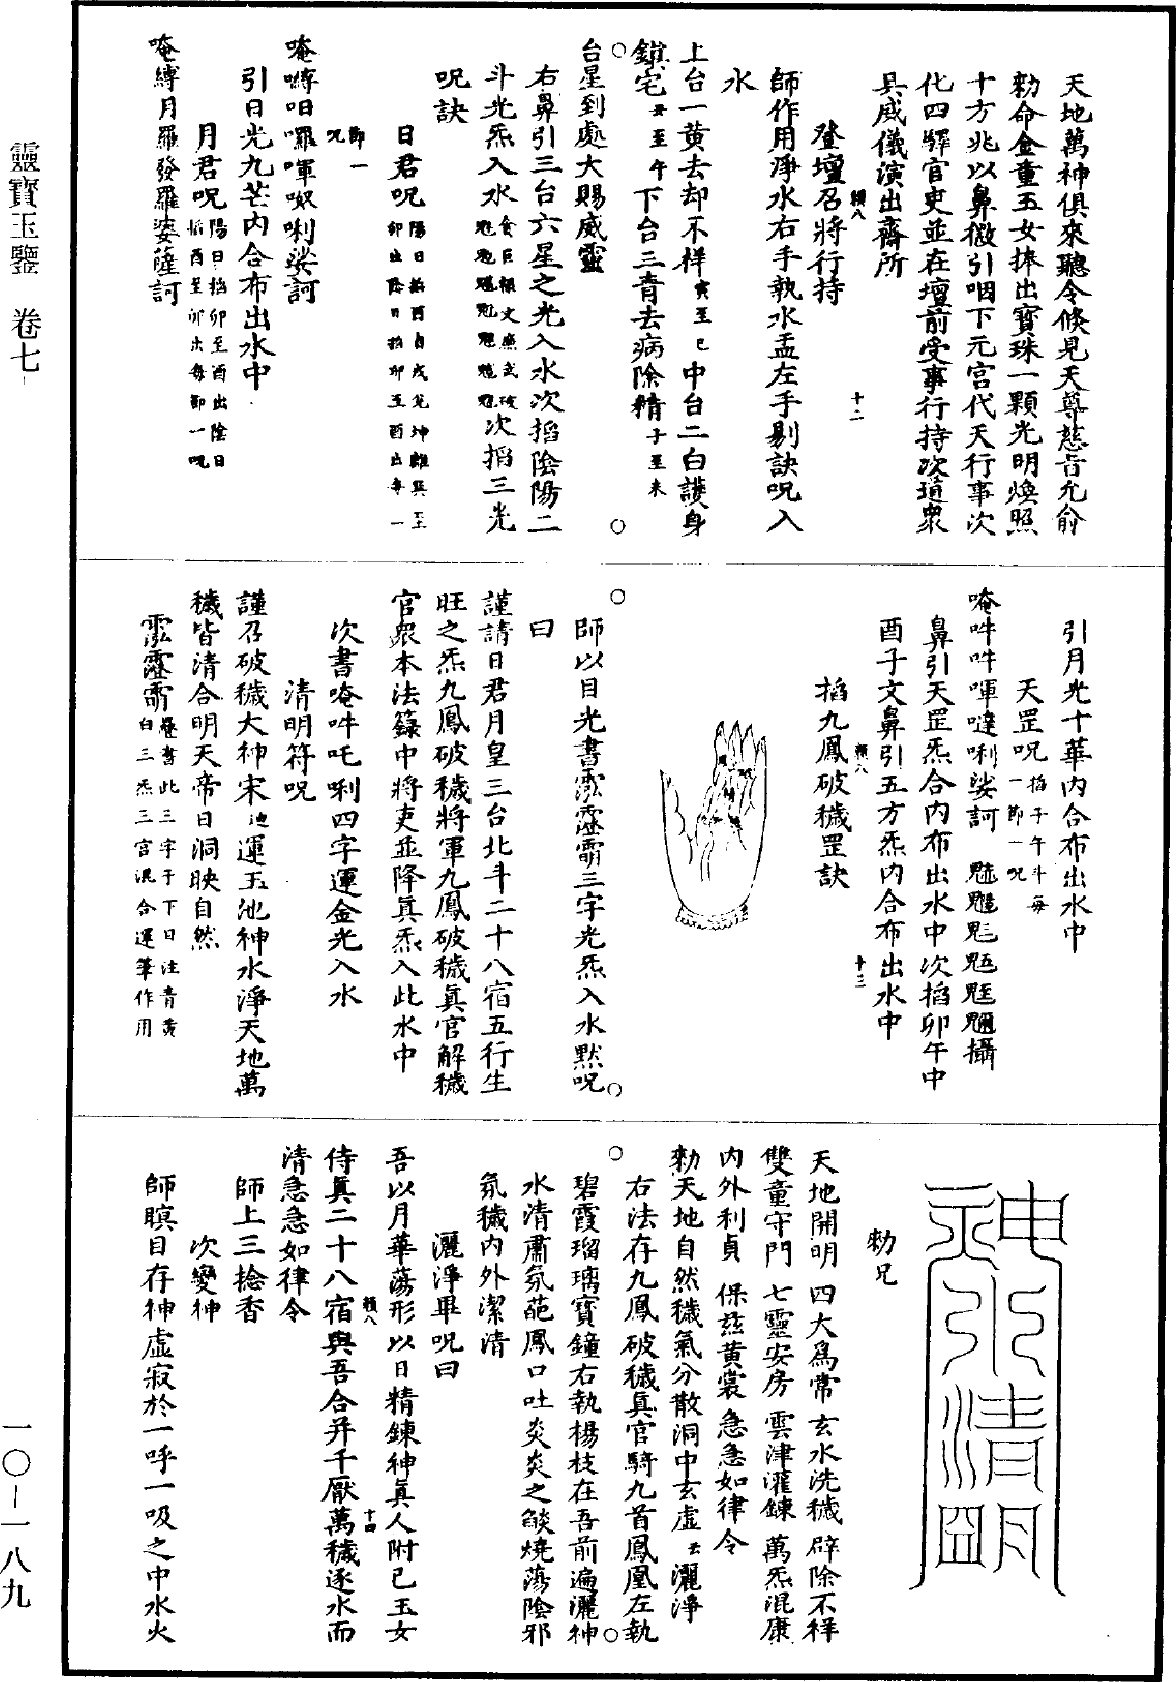 靈寶玉鑒 卷七
一〇-一八九
天地萬神俱來聽令倏見天尊慈旨允俞
勑命金童玉女捧出寶珠一顆光明煥照
十方兆以鼻微引咽下元宮代天行事次
化四驛官吏並在壇前受事行持次道眾
具威儀演出齋所
登壇召將行持
師作用淨水右手執水盂左手剔訣呪入
水
上台一黄去却不祥寅至巳中台二白護身
鎮宅丑至午下台三青去病除精子至未
台星到處大賜威靈
右鼻引三台六星之光入水次搯陰陽二
斗光炁入水貪巨祿文廉武破次搯三光
呪訣
日君呪
節一
呪
唵嚩日囉㖶呶唎娑訶
引日光九芒内合布出水中
月君呪陽日搯卯至酉出陰日搯酉至卯出每節一呪
唵縛月羅發羅婆薩訶
引月光十華内合布出水中
天罡呪搯子午斗每一節一呪
唵吽吽㖶噠唎娑訶 魁𩲃䰢魓䰡魒攝
鼻引天罡炁合内布出水中次搯卯午中
酉子文鼻引五方炁内合布出水中
搯九鳳破穢罡訣
師以目光書三字光炁入水黙呪
曰
謹請日君月皇三台北斗二十八宿五行生
旺之炁九鳳破穢將軍九鳳破穢眞官解穢
官眾本法籙中將吏並降眞炁入此水中
次書唵吽吒唎四字運金光入水
清明符呪
謹召破穢大神宋迆運玉池神水淨天地萬
穢皆清合明天帝日洞映自然
疊書此三字于下日注青黃白三炁三宮混合運筆作用
神水清明
勑兄
天地開明 四大爲常 玄水洗穢 辟除不祥
雙童守門 七靈安房 雲津灌鍊 萬炁混康
内外利貞 保茲黄裳 急急如律令
勑天地自然穢氣分散洞中玄虛云灑淨
右法存九鳳破穢眞官騎九首鳳凰左執
碧霞瑠璃寶鐘右執楊枝在吾前遍灑神
水清肅氛葩鳳口吐炎炎之燄燒蕩陰邪
氛穢内外潔清
灑淨畢呪曰
吾以月華蕩形以日精鍊神眞人附已玉女
侍眞二十八宿與吾合并千厭萬穢逐水而
清急急如律令
師上三捻香
次變神
師瞑目存神虛寂於一呼一吸之中水火